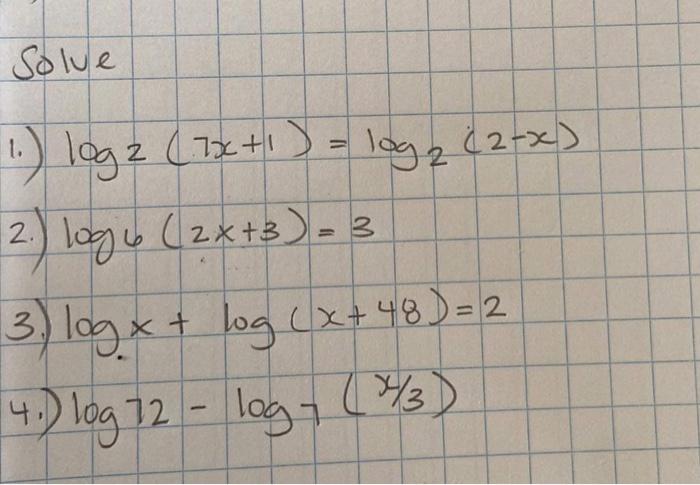 Solve
1.) log 2 (7x+1) = log₂ (2-x)
2.) log 6 (2x+3) = 3
3.) log x + log (x+48) = 2
4.) log 72 - log₇ (x/3)